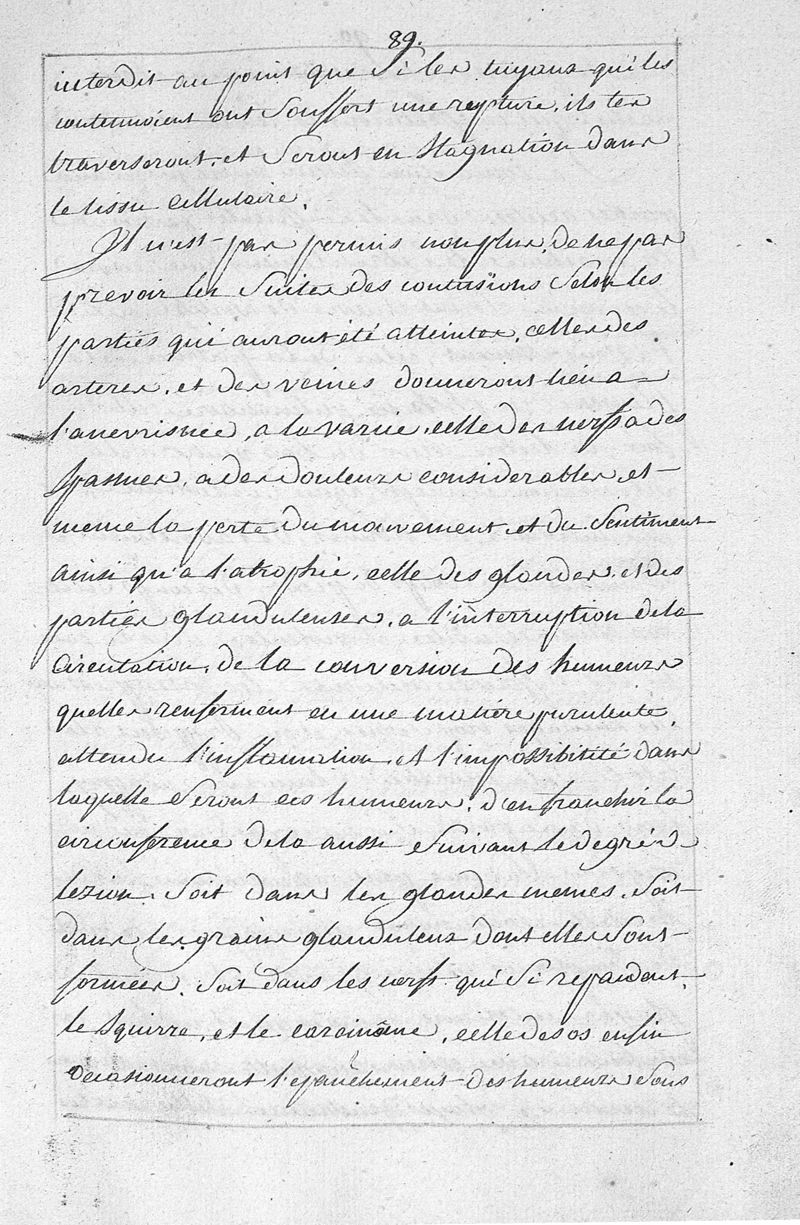 89.
interdit au point que Si les tuyaux qui les
contenoient ont Souffert une repture, ils les
traverseront, et Seront en Stagnation dans
le tissu cellulaire.
Il n'est pas permis non plus de ne pas
prevoir les Suites des contusions Selon les
parties qui auront été atteintes, celles des
arteres, et des veines donneront lieu a
l'anevrisme, a la varice, celle des nerfs a des
Spasmes, a des douleurs considerables, et
meme la perte du mouvement et du Sentiment
ainsi qu'a l'atrophie, celle des glandes, et des
parties glanduleuses, a l'interruption de la
Circulation, de la conversion des humeurs
quelles renferment en une matiere purulente,
attendu l'inflamation, et l'impossibilité dans
laquelle Seront ces humeurs, d'en franchir la
circonference de la aussi Suivant le degré de
lezion, Soit dans les glandes memes, Soit
dans les grains glanduleux dont elles Sont
formées, Soit dans les nerfs qui Si repandent,
le Squirre, et le carcinome, celle des os enfin
occasionneront l'epanchement des humeurs Sous